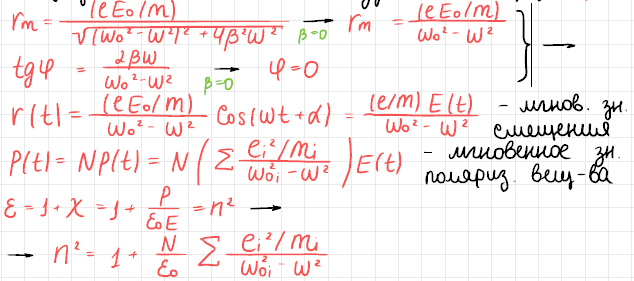 rm = (eE₀/m) / √((ω₀² - ω²)² + 4β²ω²) → β=0 rm = (eE₀/m) / (ω₀² - ω²) } →
tgφ = 2βω / (ω₀² - ω²) → β=0 φ = 0
r(t) = (eE₀/m) / (ω₀² - ω²) Cos(ωt + α) = (e/m) E(t) / (ω₀² - ω²) - мгнов. зн. смещения
P(t) = Np(t) = N (∑ eᵢ²/mᵢ / (ω₀ᵢ² - ω²)) E(t) - мгновенное зн. поляриз. вещ-ва
ε = 1 + χ = 1 + P / (ε₀E) = n² →
→ n² = 1 + N/ε₀ ∑ eᵢ²/mᵢ / (ω₀ᵢ² - ω²)